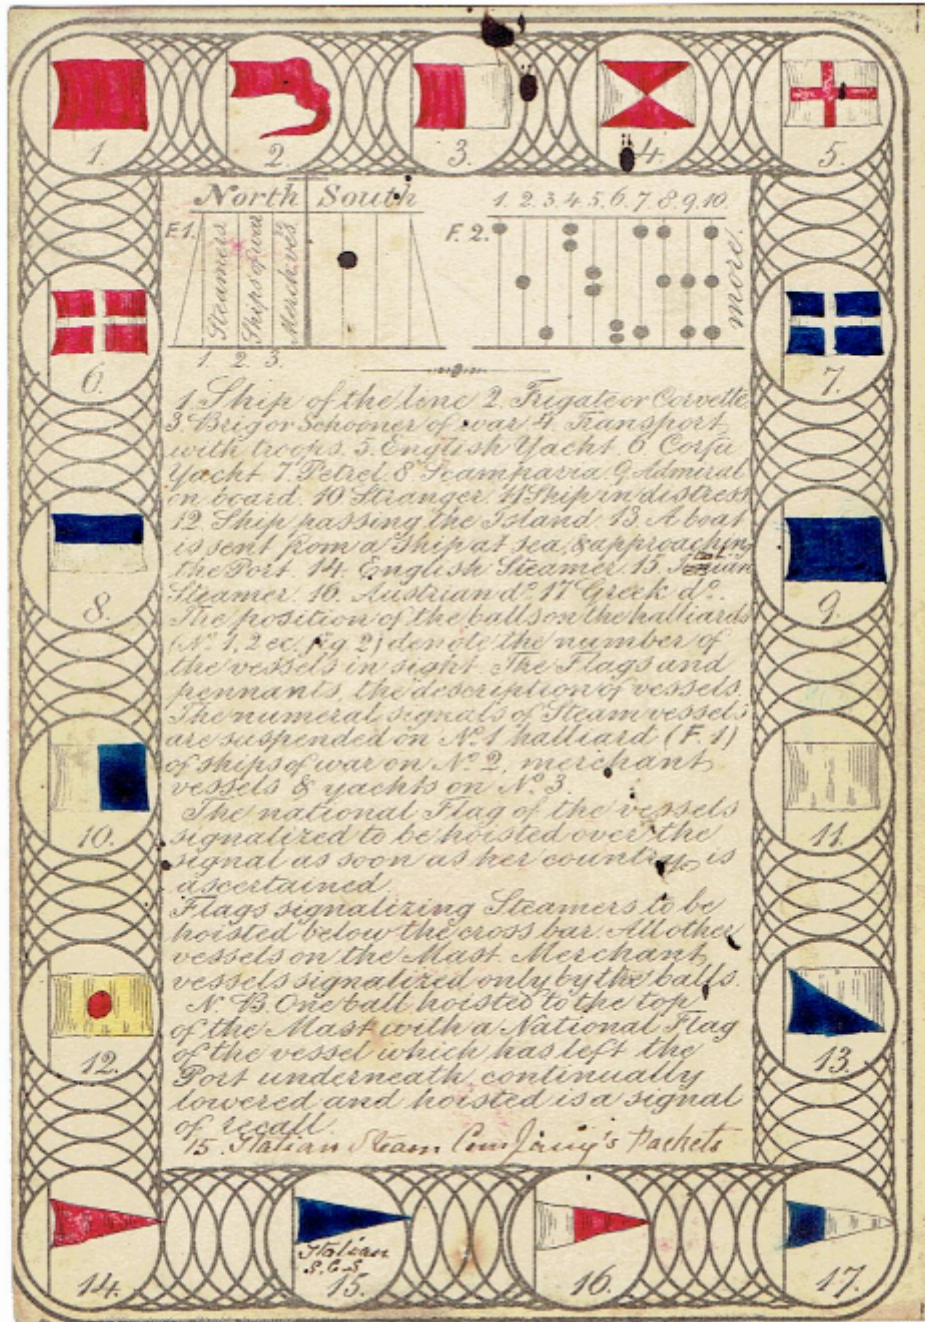 1. 2. 3. 4. 5.
North South
1. 2. 3. 4. 5. 6. 7. 8. 9. 10
F. 1. Steamers Ships of war Merch. ves.
F. 2. more.
1. 2. 3.
6. 7.
1. Ship of the line 2. Frigate or Corvette
3 Brig or Schooner of war 4. Transport
with troops. 5. English Yacht. 6. Corfu
Yacht. 7. Petrel. 8. Scamparia. 9. Admiral
on board. 10 Stranger. 11 Ship in distress
12. Ship passing the Island. 13. A boat
is sent from a Ship at sea, & approaching
the Port. 14. English Steamer. 15.
Steamer. 16. Austrian do. 17 Greek do.
The position of the balls on the halliards
(No. 1, 2 ec. fig 2) denote the number of
the vessels in sight The Flags and
pennants, the description of vessels.
The numeral signals of Steam vessels
are suspended on No. 1 halliard (F. 1)
of ships of war on No. 2, merchant
vessels & yachts on No. 3.
The national Flag of the vessels
signalized to be hoisted over the
signal as soon as her country is
ascertained
Flags signalizing Steamers to be
hoisted below the cross bar. All other
vessels on the Mast. Merchant
vessels signalized only by the balls.
N. B. One ball hoisted to the top
of the Mast with a National Flag
of the vessel which has left the
Port underneath, continually
lowered and hoisted is a signal
of recall
15. Italian Steam Packets
8. 9.
10. 11.
12. 13.
14. 15. 16. 17.
Italian
S. C. S